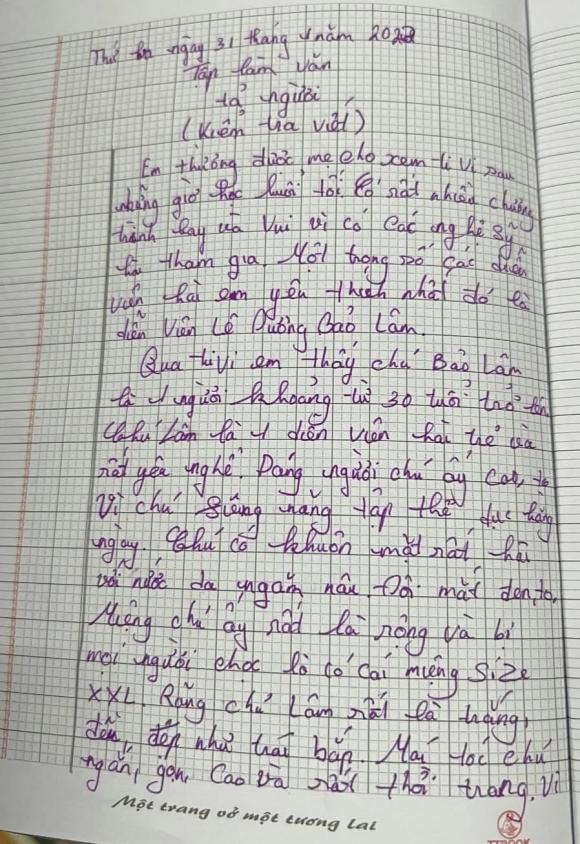 Thứ ba ngày 31 tháng 1 năm 2023
Tập làm văn
tả người
(Kiểm tra viết)
Em thường được mẹ cho xem ti vi sau
những giờ học buổi tối. Có rất nhiều chương
trình hay và vui vì có các nghệ sỹ
hài tham gia. Một trong số các diễn
viên hài em yêu thích nhất đó là
diễn viên Lê Dương Bảo Lâm.
Qua tivi em thấy chú Bảo Lâm
là 1 người khoảng từ 30 tuổi trở lên.
Chú Lâm là 1 diễn viên hài trẻ và
rất yêu nghề. Dáng người chú ấy cao, to
vì chú siêng năng tập thể dục hằng
ngày. Chú có khuôn mặt rất hài
với nước da ngăm nâu. Đôi mắt đen, to.
Miệng chú ấy rất là rộng và bị
mọi người chọc là có cái miệng size
XXL. Răng chú Lâm rất là trắng,
đều, đẹp như trái bắp. Mái tóc chú
ngắn, gọn, cao và rất thời trang. Vì
Một trang vở một tương lai
TTBOOK